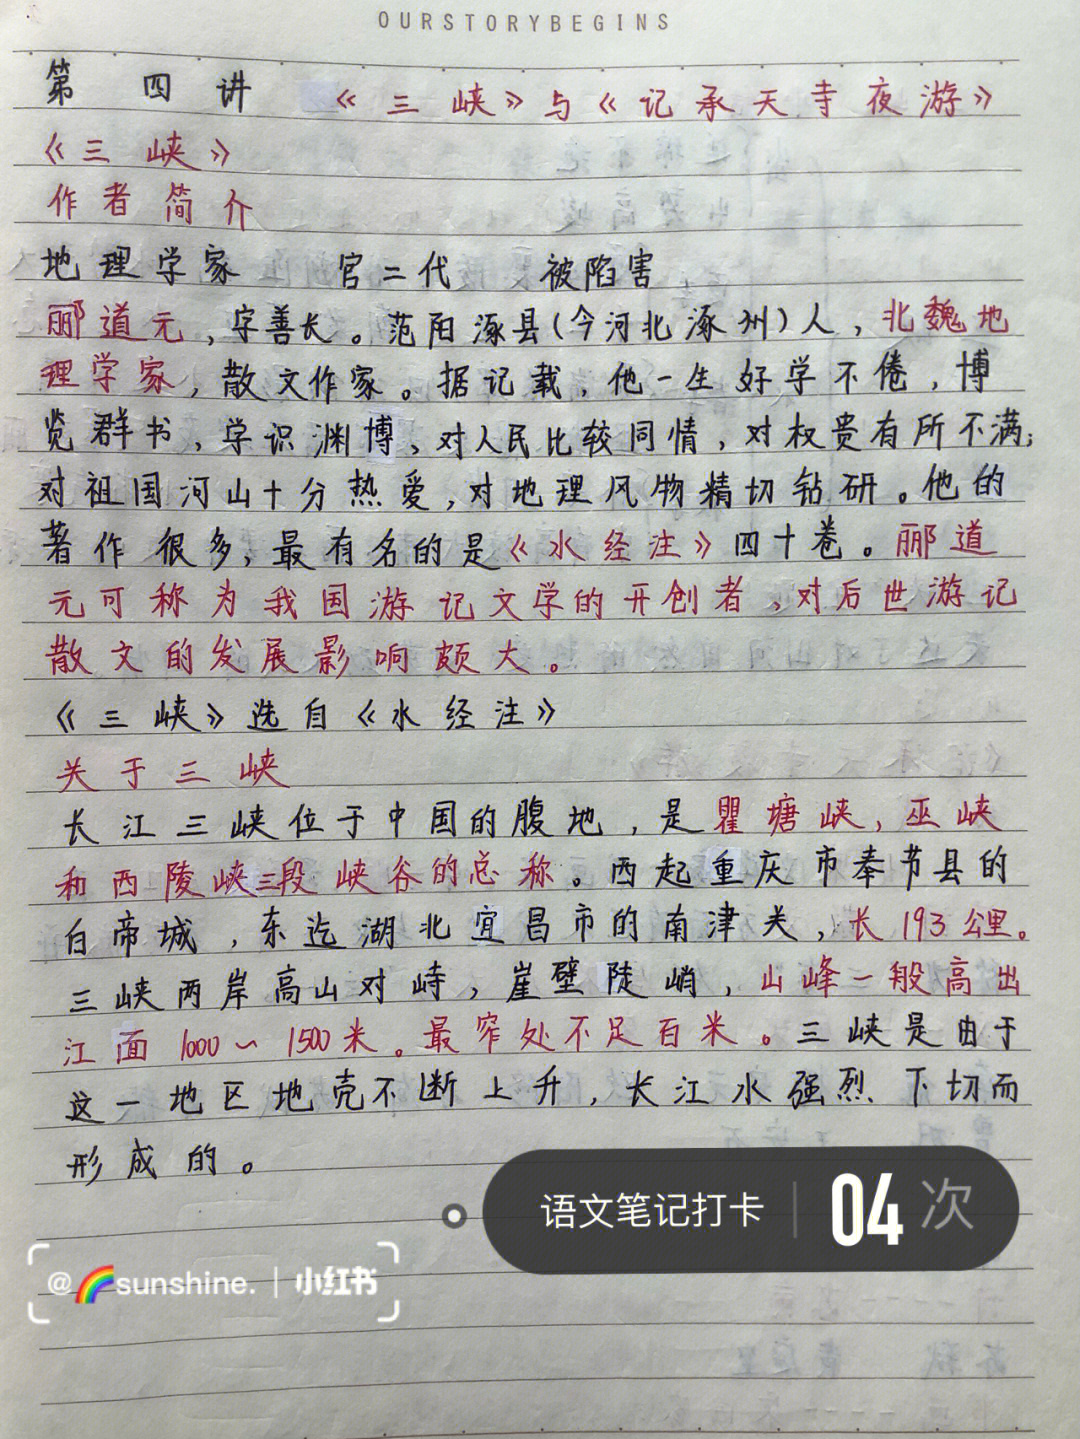 OURSTORYBEGINS
第四讲 《三峡》与《记承天寺夜游》
《三峡》
作者简介
地理学家 官二代 被陷害
郦道元,字善长。范阳涿县(今河北涿州)人,北魏地
理学家,散文作家。据记载,他一生好学不倦,博
览群书,学识渊博、对人民比较同情,对权贵有所不满;
对祖国河山十分热爱,对地理风物精切钻研。他的
著作很多,最有名的是《水经注》四十卷。郦道
元可称为我国游记文学的开创者,对后世游记
散文的发展影响颇大。
《三峡》选自《水经注》
关于三峡
长江三峡位于中国的腹地,是瞿塘峡,巫峡
和西陵峡三段峡谷的总称。西起重庆市奉节县的
白帝城,东迄湖北宜昌市的南津关,长193公里。
三峡两岸高山对峙,崖壁陡峭,山峰一般高出
江面1000~1500米。最窄处不足百米。三峡是由于
这一地区地壳不断上升,长江水强烈下切而
形成的。
语文笔记打卡 04次
@🌈sunshine. 小红书